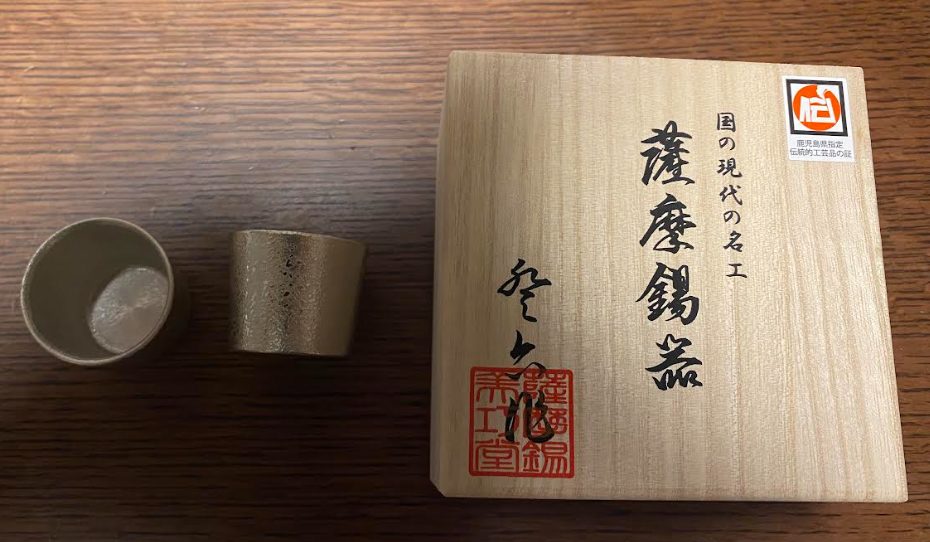 国の現代の名工
薩摩錫器
薩摩錫
美巧堂
伝
鹿児島県指定
伝統的工芸品の証